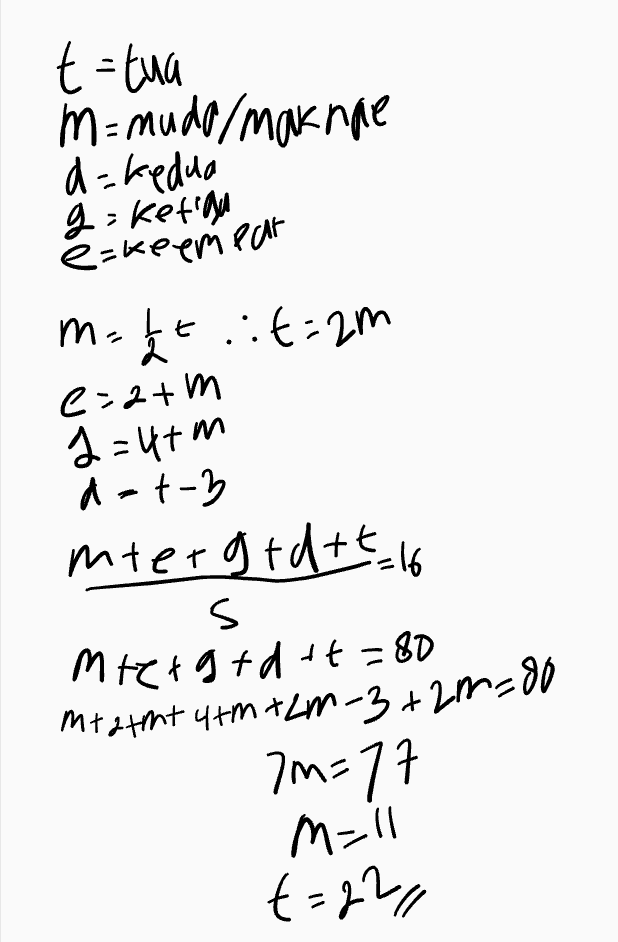 t = tua
m = muda/maknae
d = kedua
g = ketiga
e = keempat
m = 1/2 t ∴ t = 2m
e = 2 + m
g = 4 + m
d = t - 3
m + e + g + d + t = 16
5
m + e + g + d + t = 80
m + 2 + m + 4 + m + 2m - 3 + 2m = 80
7m = 77
m = 11
t = 22 //